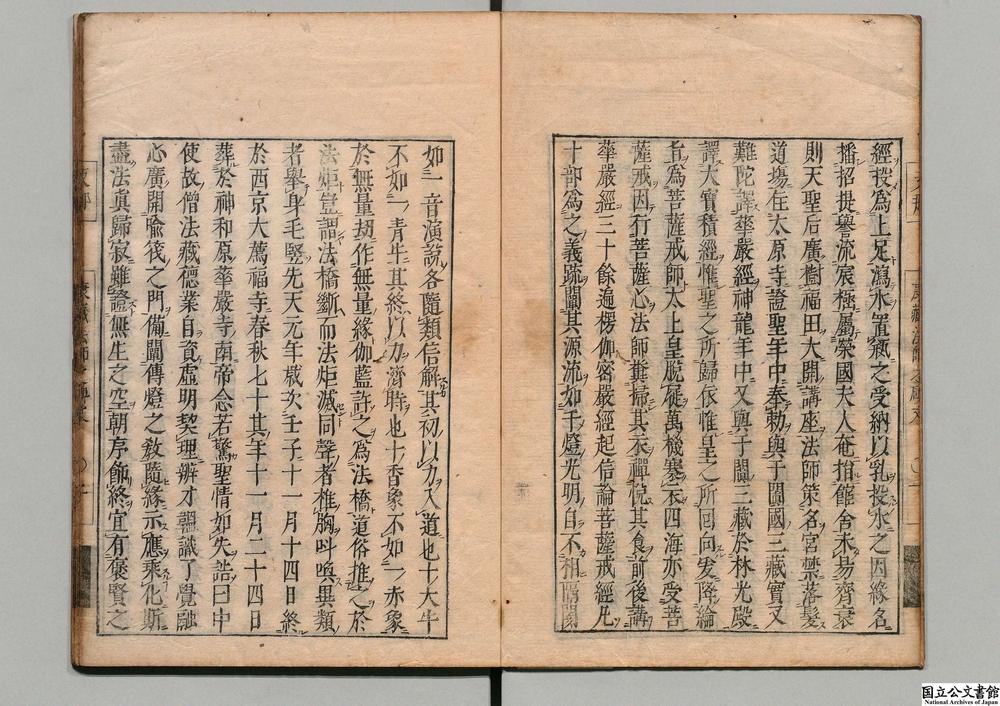 經投爲上足瀉水置瓶之受納以乳投水之因緣名
播招提譽流宸極屬榮國夫人奄捐館舍未易齊衰
則天聖后廣樹福田大開講座法師策名宮禁落髮
道場住太原寺證聖年中奉勅與于闐國三藏實又
難陀譯華嚴經神龍年中又與于闐三藏於林光殿
譯大寶積經惟聖之所歸依惟皇之所回向爰降綸
旨爲菩薩戒師太上皇脫屣萬機褰衣四海亦受菩
薩戒因行菩薩心法師糞掃其衣禪悅其食前後講
華嚴經三十餘遍楞伽密嚴經起信論菩薩戒經凡
十部爲之義疏闡其源流如千燈光明自不相隱闔
如一音演說各隨類信解其初以力入道也十大牛
不如一青牛其終以力濟時也十香象不如一赤象
於無量劫作無量緣伽藍許之爲法橋道俗推之於
法炬豈謂法橋斷而法炬滅同聲者椎胸叫喚異類
者舉身毛竪先天元年歲次壬子十一月十四日終
於西京大薦福寺春秋七十其年十一月二十四日
葬於神和原華嚴寺南帝念若驚聖情如失誥曰中
使故僧法藏德業自資虛明契理辨才韞識了覺融
心廣開喻筏之門備闡傳燈之敎隨緣示應乘化斯
盡法眞歸寂雖證無生之空朝序飾終宜有褒賢之
国立公文書館
National Archives of Japan